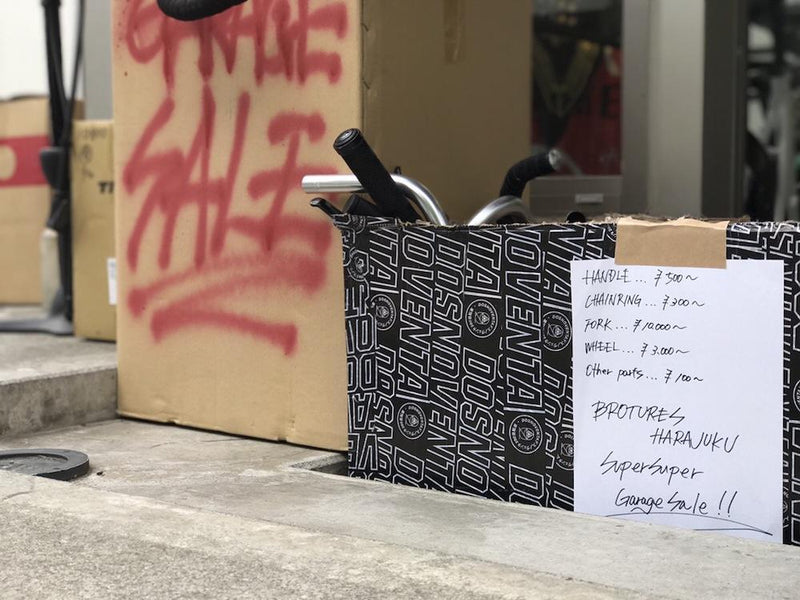 GARAGE
SALE
HANDLE... ¥500~
CHAINRING... ¥300~
FORK... ¥10.000~
WHEEL... ¥3.000~
Other parts... ¥100~
BROTURES
HARAJUKU
SuperSuper
Garage Sale!!
DOSNOVENTA
DOSNOVENTA
DOSNOVENTA